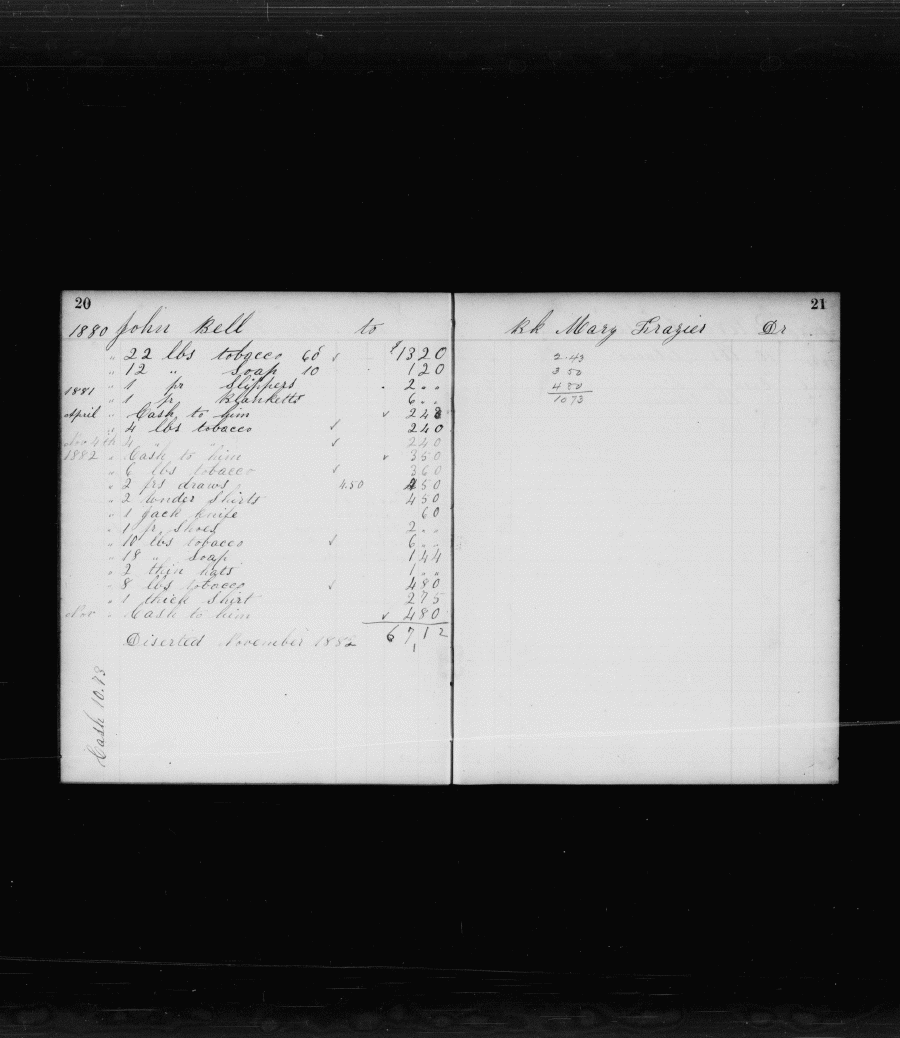 20
1880 John Bell to
" 22 lbs tobacco 60 ✓ $1320
" 12 " Soap 10 120
" 1 pr Slippers 2 " "
1881 " 1 pr Blanketts 6 " "
April " Cash to him ✓ 243
" 4 lbs tobacco ✓ 240
Nov 4th 4 " " ✓ 240
1882 " Cash to him ✓ 350
" 6 lbs tobacco ✓ 360
" 2 prs draws 4.50 450
" 2 under Shirts 450
" 1 jack knife 60
" 1 pr Shoes 2 " "
" 10 lbs tobacco ✓ 6 " "
" 18 " Soap 144
" 2 thin hats 1 " "
" 8 lbs tobacco ✓ 480
" 1 thick Shirt 275
Nov " Cash to him ✓ 480
6712
Diserted November 1882
Cash 10.73
21
Bk Mary Frazier Dr
2.43
3 50
4 80
10 73